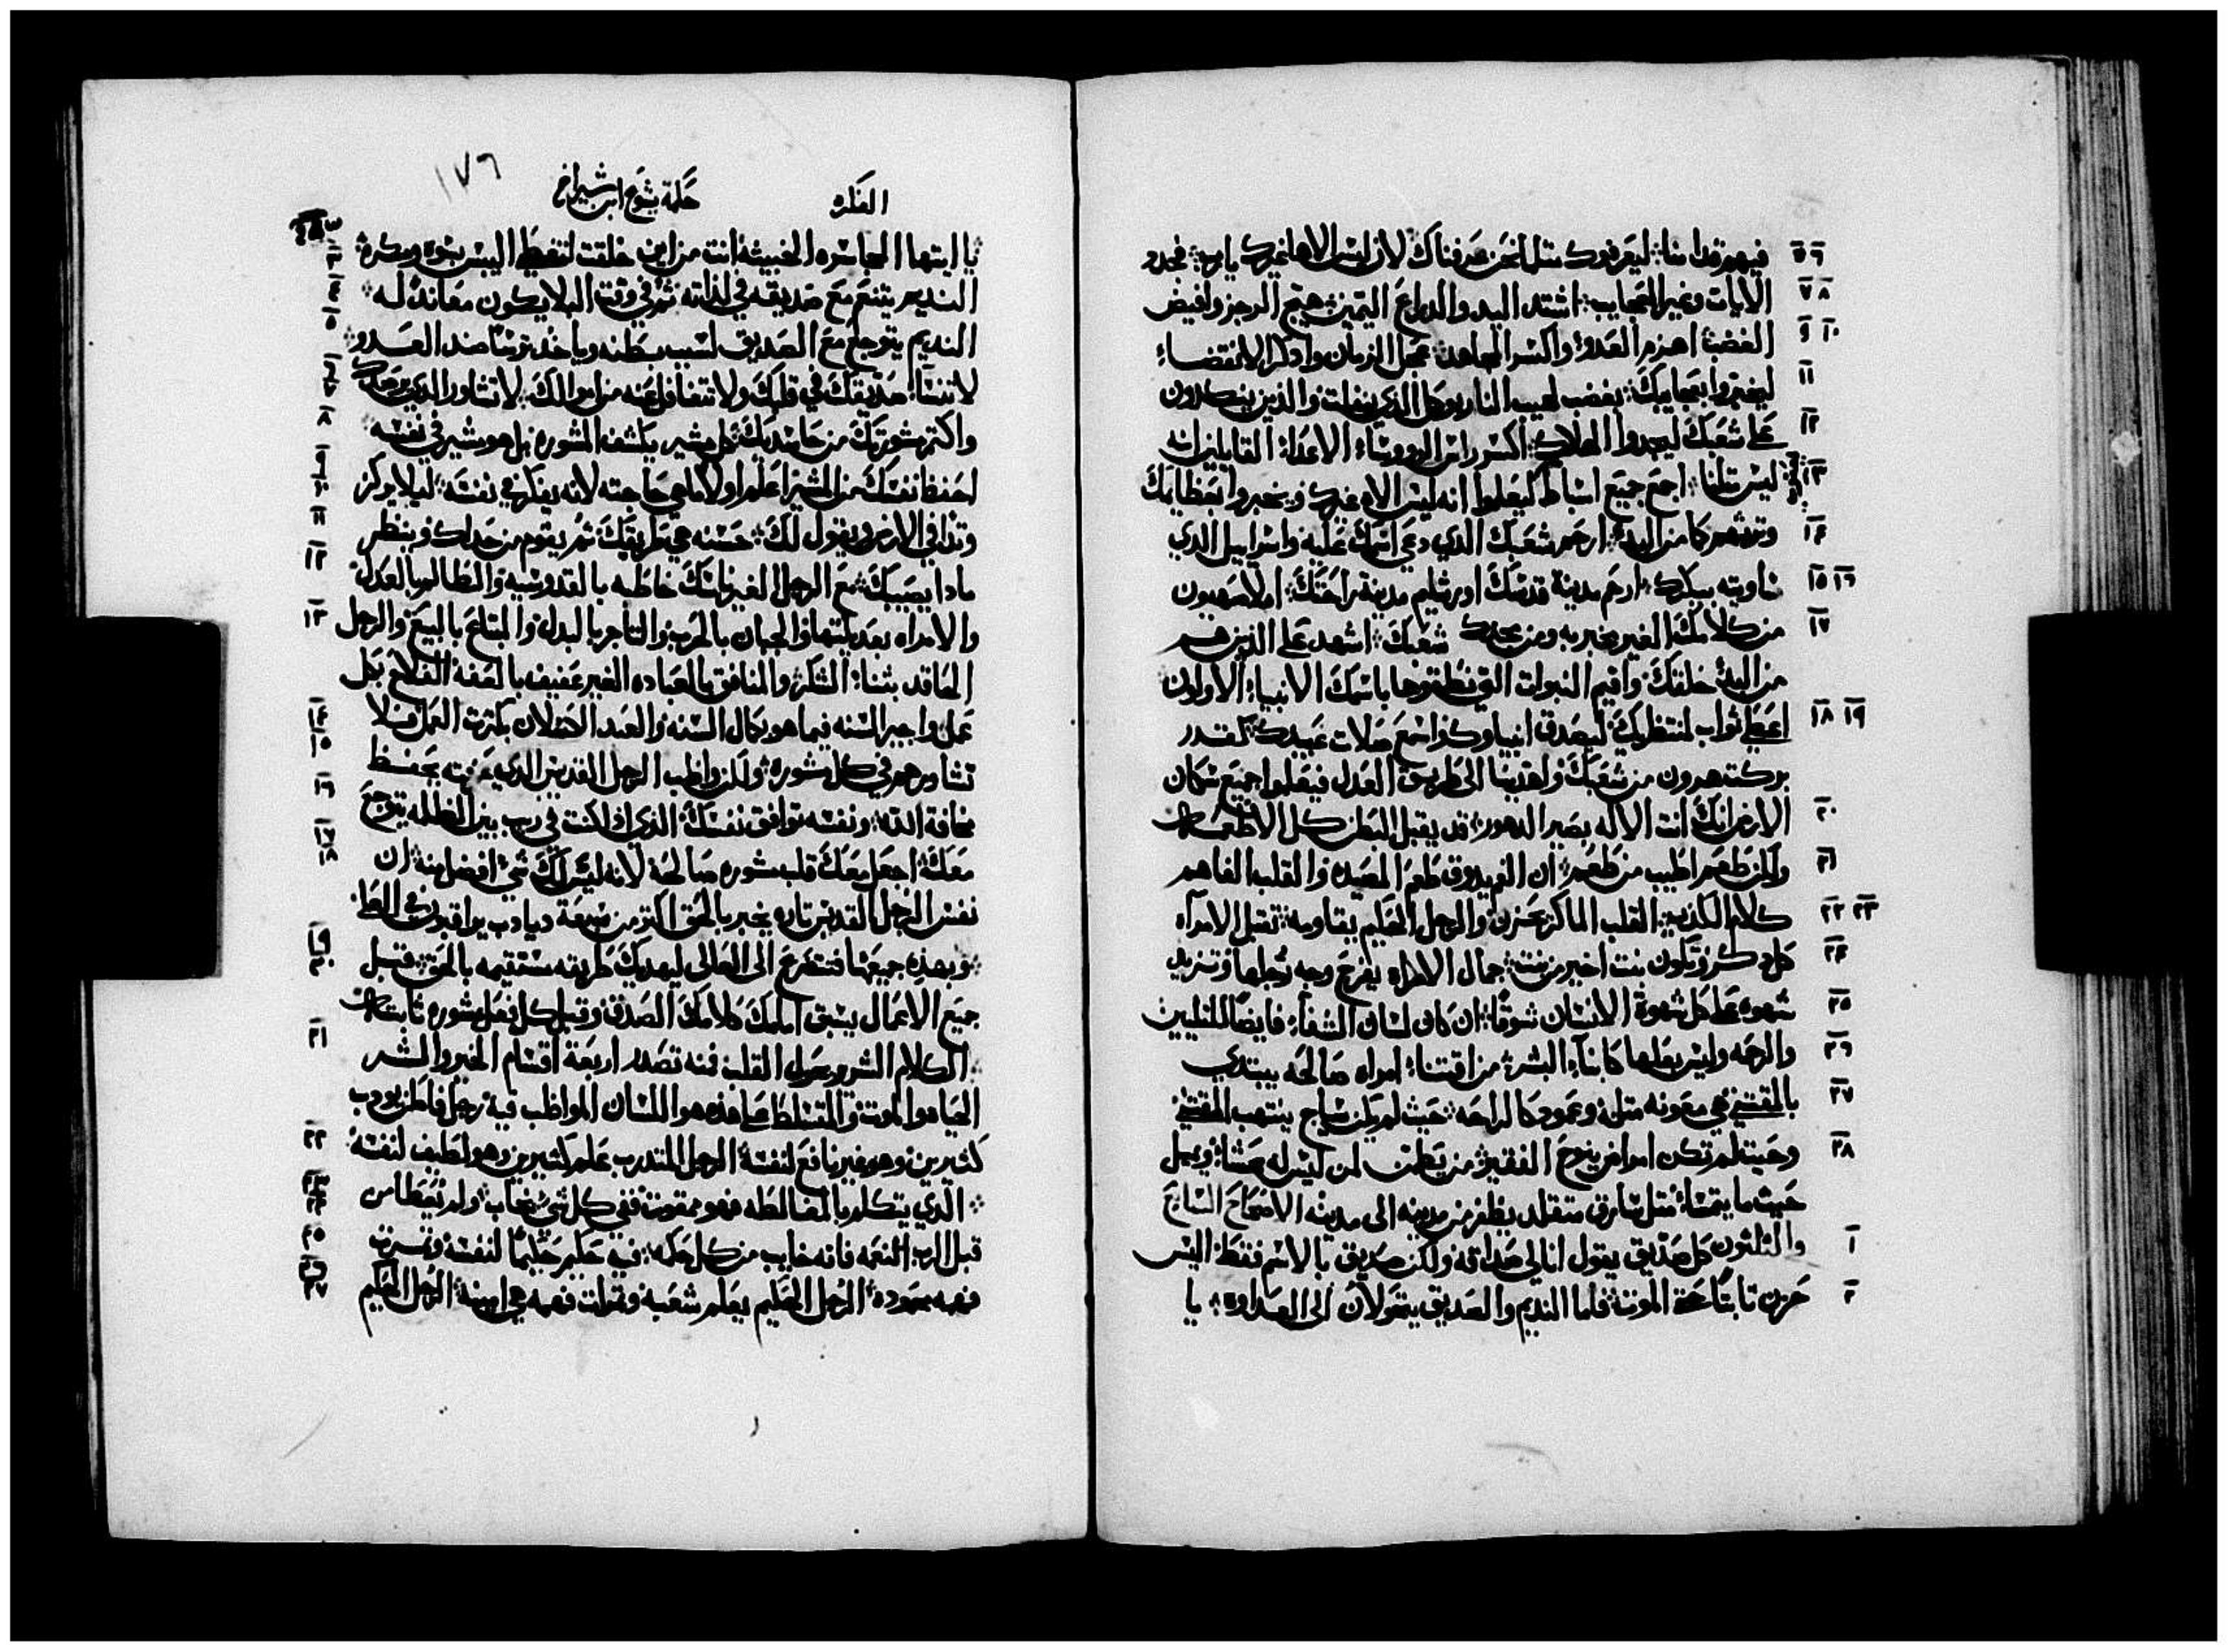 فيهم قدامنا ليعرفوك مثل نحن عرفناك لان ليس الاها غيرك يارب فجدد
٥ ٦
الايات وغير العجايب اشتد اليد والدراع اليمين هيج الرجز وافيض
٧ ٨
الغضب اهزم العدو واكسر المجاهد عجل الزمان وادكر الانقضاء
٩ ١٠
ليخبروا بعجايبك بغضب لهيب النار يوكل الذي ينفلت والذين ينكدون
١١
على شعبك ليجدوا الهلاك اكسر راس الرووساء الاعداء القايلين انه
١٢
ليس مثلنا اجمع جميع اسباط ليعلموا انه ليس الاه غيرك ويخبروا بعظايمك
١٣
وترثهم كما من البدء ارحم شعبك الذي دعي اسمك عليه واسراييل الذي
١٤
ساويته ببكرك ارحم مدينة قدسك اورشليم مدينة راحتك املا صهيون
١٥ ١٦
من كلامك الغير مخبر به ومن مجدك شعبك اشهد على الذين هم
١٧
من البدء خلقتك واقيم النبوات التي نطقوها باسمك الانبياء الاولون
اعطي ثواب لمنتظريك ليصدق انبياوك واسمع صلات عبيدك
١٨ ١٩
بركت هرون من شعبك واهدينا الى طريق العدل فيعلموا جميع سكان
الارض انك انت الاله بصير الدهور قد يقبل البطن كل الاطعمه
٢٠
ولكن طعم اطيب من طعم ان الفم يدوق طعم الصيد والقلب الفاهم
٢١
كلام الكذب القلب الماكر يحزن والرجل الحكيم يقاومه تقبل الامراه
٢٢ ٢٣
كل دكر وتكون بنت اخير من بنت جمال الامراه يفرح وجه رجلها وتزيد
٢٤
شهوه على كل شهوة الانسان شوقا ان كان لسان الشفاء فايضا للتليين
٢٥
والرحمه وليس بعلها كابناء البشر من اقتناء امراه صالحه يبتدي
٢٦
بالمقتني هي معونه مثله وعمود كالراحه حيث لم يكن سياج ينتهب المقتني
٢٧
وحيث لم تكن امراه ينوح الفقير من يطمن لمن ليس له عشا ويميل
٢٨
حيث ما يتمسا مثل سارق متقلد يظفر من مدينه الى مدينه الاصحاح السابع
والثلثون كل صديق يقول انا لي صداقه ولكن صديق بالاسم فقط اليس
١
حزن ثابتا حتى الموت فاما النديم والصديق يتحولان الى العداوه يا
٢
١٧٦
الفكره
حكمة يشوع ابن شيراخ
يا ايتها الجاسره الخبيثه انت من اين خلقت لتغطي اليبس بسوء ومكره
٣
النديم يتنعم مع صديقه في لذاته ثم في وقت البلا يكون معاند له
٤
النديم يتوجع مع الصديق لسبب بطنه وياخذ ترسا ضد العدو
٥
لا تنسا صديقك في قلبك ولا تتغافل عنه من اموالك لا تشاور الذي يرصدك
٦ ٧
واكتم مشورتك من حاسديك كل مشير يكشف المشوره بل هو مشير في نفسه
٨
احفظ نفسك من المشير اعلم اولا ما هي حاجته لانه يفكر في نفسه ليلا يركز
٩ ١٠
وتدا في الارض ويقول لك حسنه هي طريقك ثم يقوم من حداك وينظر
١١
مادا يصيبك مع الرجل الغير ناسك خاطبه بالقدوسيه والظالم بالعدل
١٢
والامراه بعديلتها والجبان بالحرب والتاجر بالبدل والمبتاع بالبيع والرجل
١٣
الحاقد بثناء الشكر والمنافق بالعباده الغير عفيف بالعفه الفلاح بكل
عمل واجير السنه فيما هو بكمال السنه والعبد الكسلان بكثرت العمل فلا
١٤
تشاورهم في كل مشوره ولكن واظب الرجل القديس الذي عرفته يحفظ
١٥
مخافة الله ونفسه توافق نفسك الذي اذا كنت في ريب بين الظلمه يتوجع
١٦
معك اجعل معك قلب مشوره صالحه لانه ليس لك شي افضل منه ان
١٧ ١٨
نفس الرجل القديس تاره يخبر بالحق اكثر من سبعة ديادب يراقبون في العلا
وبهذه جميعها فتتضرع الى العالي ليهديك طريقه مستقيمه بالحق قبل
١٩ ٢٠
جميع الاعمال يسبق امامك كلامك الصدق وقبل كل فعل مشوره ثابته
الكلام الشرير يحول القلب فمنه تصدر اربعة اقسام الخير والشر
٢١
الحياه والموت والمتسلط على هذه هو اللسان المواظب فيه رجل فاطن يودب
كثيرين وهو غير نافع لنفسه الرجل المتدرب علم كثيرين وهو لطيف لنفسه
٢٢
الذي يتكلم بالمغالطه فهو ممقوت ففي كل شي يخاب ولم تعطا من
٢٣ ٢٤
قبل الرب النعمه فانه خايب من كل حكمه فيه حكيم حكيما لنفسه وثمرت
٢٥
فهمه محموده الرجل الحكيم يعلم شعبه وثمرات فهمه هي امينه الرجل الحكيم
٢٦ ٢٧